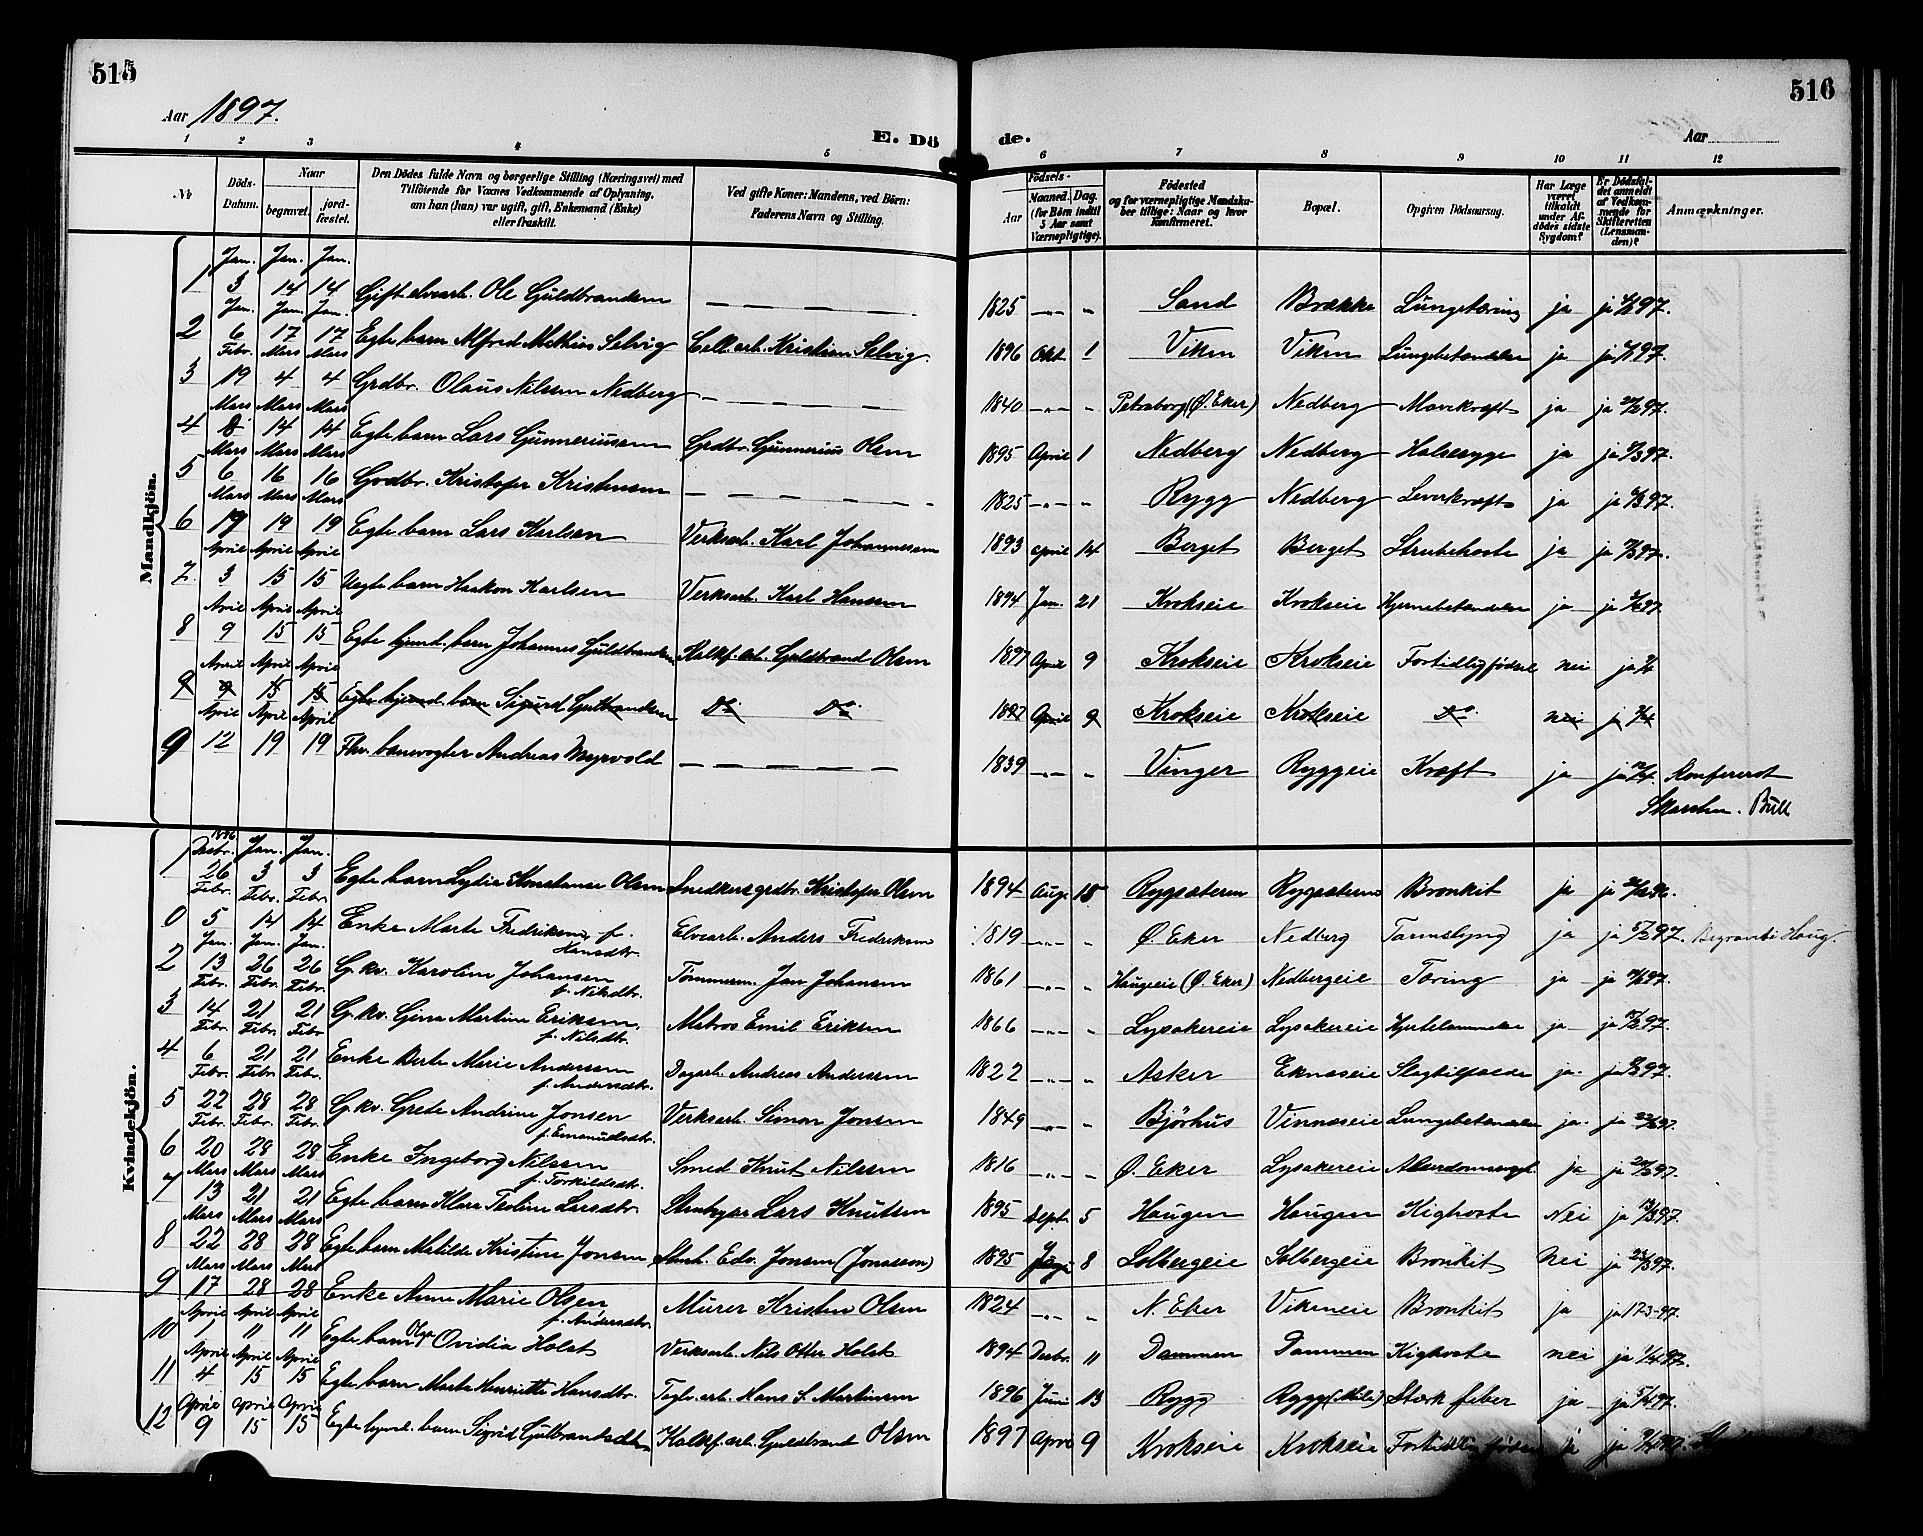 515
516
Aar 1897.
E. Dö de.
Aar
1 2 3 4 5 6 7 8 9 10 11 12
Nr
Döds-Datum.
Naar
begravet.
jordfæstet.
Den Dödes fulde Navn og borgerlige Stilling (Næringsvei) med
Tilföiende for Voxnes Vedkommende af Oplysning,
om han (hun) var ugift, gift, Enkemand (Enke)
eller fraskilt.
Ved gifte Koner: Mandens, ved Börn:
Faderens Navn og Stilling.
Födsels-
Aar
Maaned. Dag.
(for Börn indtil
5 Aar samt
Værnepligtige).
Födested
og for værnepligtige Mandskaber tillige: Naar og hvor
konfirmeret.
Bopæl.
Opgiven Dödsaarsag.
Har Læge
været
tilkaldt
under Afdödes sidste
Sygdom?
Er Dödsfaldet anmeldt
af Vedkommende for
Skifteretten
(Lensmanden)?
Anmærkninger.
Mandkjön.
1 Jan. 3 Jan. 14 Jan. 14 Gift elvearb. Ole Guldbrandsen — 1825 Sand Brække Lungetæring ja ja
2 Jan. 6 Jan. 17 Jan. 17 Egte barn Alfred Mathius Selvig Cell.arb. Kristian Selvig. 1896 Okt. 1 Viken Viken Lungebetændelse ja ja
3 Febr. 19 Mars 4 Mars 4 Grdbr. Olaus Nilssen Nedberg — 1840 (Ø. Eker) Nedberg Mavekræft ja ja
4 Mars 8 Mars 14 Mars 14 Egte barn Lars Gunneriussen Grdbr. Gunnerius Olsen 1895 April 1 Nedberg Nedberg Halsesyge ja ja
5 Mars 6 Mars 16 Mars 16 Grdbr. Kristofer Kristensen — 1825 Rygg Nedberg Leverkræft ja ja
6 Mars 19 Mars 19 Egte barn Lars Karlsen Verksarb. Karl Johannesen 1893 April 14 Berget Berget Strubehoste ja ja
7 April 3 April 15 April 15 Uegte barn Haakon Karlsen Verksarb. Karl Hansen 1894 Jan. 21 Krokseie Krokseie Hjernebetændelse ja ja
8 April 9 April 15 April 15 Egte hjemd. barn Johannes Guldbrandsen Kalkf. arb. Guldbrand Olsen 1897 April 9 Krokseie Krokseie Fortidlig födsel nei ja
9 April 9 April 15 April 15 Egte hjemd. barn Sigurd Gulbrandsen Do. Do. 1897 April 9 Krokseie Krokseie Do. nei ja
9 April 12 April 19 April 19 Fhv. banevogter Andreas Myrvold — 1839 Vinger Ryggeie Kræft ja ja Konfereret
Bull
Kvindekjön.
1 1896 Desbr. 26 Jan. 3 Jan. 3 Egte barn Lydia Konstanse Olsen Snedker & grdbr. Kristofer Olsen 1894 Aug. 15 Rygsæteren Rygsæteren Bronkit ja ja
0 Febr. 5 Febr. 14 Febr. 14 Enke Marte Fredriksen f. Hansdtr. Elvearb. Anders Fredriksen 1819 Ø. Eker Nedberg Tarmslyng ja ja Begravet i Haug.
2 Jan. 13 Jan. 26 Jan. 26 G. kv. Karoline Johansen f. Nilsdtr. Tömmerm. Jan Johansen 1861 Haugeie (Ø. Eker) Nedbergeie Tæring ja ja
3 Febr. 14 Febr. 21 Febr. 21 G. kv. Gina Martine Eriksen f. Nilsdtr. Matros Emil Eriksen 1866 Lysakereie Lysakereie Hjertelammelse ja ja
4 Febr. 6 Febr. 21 Febr. 21 Enke Berte Marie Andersen f. Andersdtr. Dagarb. Andreas Andersen 1822 Asker Eknæseie Slagtilfælde ja ja
5 Febr. 22 Febr. 28 Febr. 28 G. kv. Grete Andrine Jonsen f. Emanuelsdtr. Verksarb. Simon Jonsen 1849 Bjørhus Vinnæseie Lungebetændelse ja ja
6 Febr. 20 Febr. 28 Febr. 28 Enke Ingeborg Nilssen f. Torkildsdtr. Smed Knut Nilssen 1816 Ø. Eker Lysakereie Alderdomssvaghet ja ja
7 Mars 13 Mars 21 Mars 21 Egte barn Klara Teoline Larsdtr. Lars Knutsen 1895 Sept. 5 Haugen Haugen Kighoste Nei ja
8 Mars 22 Mars 28 Mars 28 Egte barn Matilde Kristine Jonsen Edv. Jonsen (Jonasson) 1895 8 Solbergeie Solbergeie Bronkit Nei ja
9 Mars 17 Mars 28 Mars 28 Enke Anne Marie Olsen f. Andersdtr. Murer Kristen Olsen 1824 N. Eker Vikeneie Bronkit ja ja 17 3-97.
10 April 1 April 11 April 11 Egte barn Olga Ovidia Holst Verksarb. Nils Otter Holst 1894 Desbr. 11 Dammen Dammen Kighoste nei ja
11 April 4 April 15 April 15 Egte barn Marte Henriette Hansdtr. Teglv.arb. Hans S. Martinsen 1896 Juni 13 Rygg Rygg Stærk feber ja ja
12 April 9 April 15 April 15 Egte hjemd. barn Sigrid Gulbrandsdtr. Kalkf. arb. Guldbrand Olsen 1897 April 9 Krokseie Krokseie Fortidlig födsel ja ja